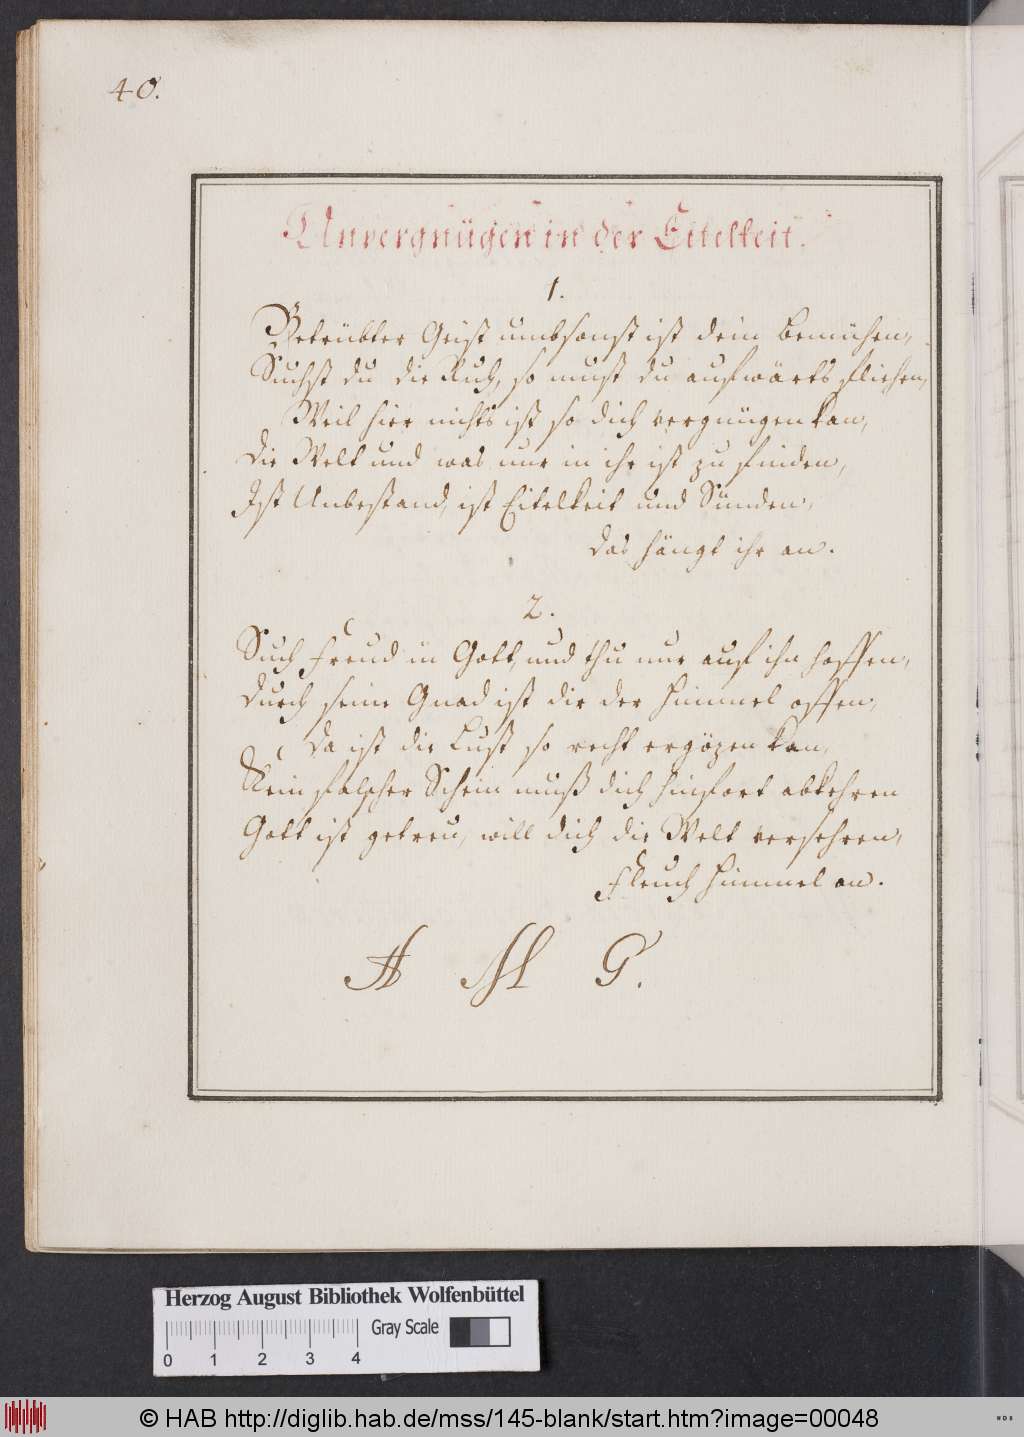 40.
Unvergnügen in der Eitelkeit.
1.
Betrübter Geist umbsonst ist dein bemühen,
Suchst du die Ruh, so must du aufwärts fliehen,
Weil hier nichts ist so dich vergnügen kan,
die Welt und was nur in ihr ist zu finden,
Ist Unbestand, ist Eitelkeit und Sünden,
das hängt ihr an.
2.
Such Freud in Gott, und thu nur auf ihn hoffen,
durch seine Gnad ist dir der Himmel offen,
Da ist die Lust so recht ergözen kan,
Kein falscher Schein muß dich hinfort abkehren
Gott ist getreu, will dich die Welt versehren,
Fleuch Himmel an.
A M G.
Herzog August Bibliothek Wolfenbüttel
Gray Scale
0 1 2 3 4
© HAB http://diglib.hab.de/mss/145-blank/start.htm?image=00048